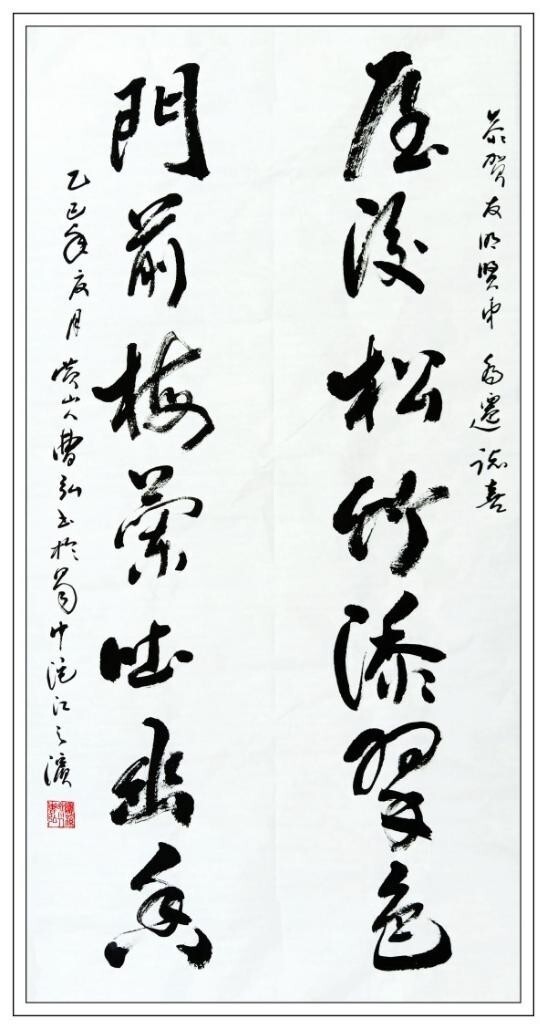 恭賀友明賢弟喬遷誌喜
屋後松竹添翠色
門前梅蘭吐幽香
乙巳年 月 營山人曹弘書於蜀中沱江之濱